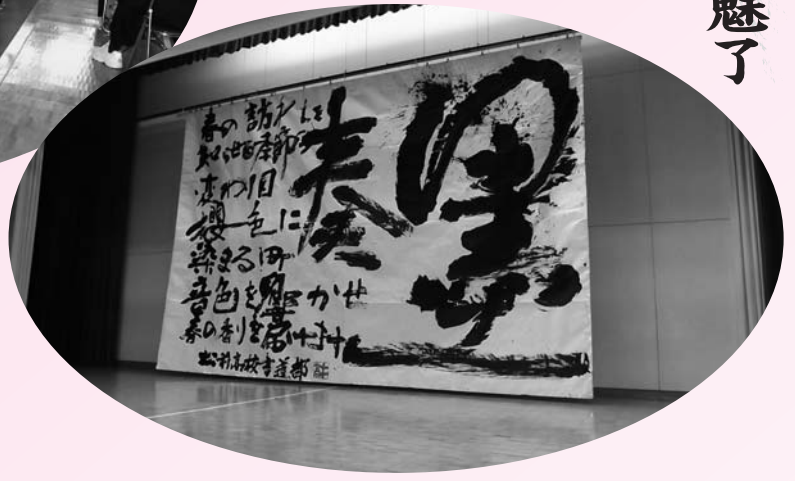 魅了
墨
奏
春の訪れを
知らせる季節の
変わり目
櫻色に
染まる町
音色を響かせ
春の香りを届けます
松前高校書道部